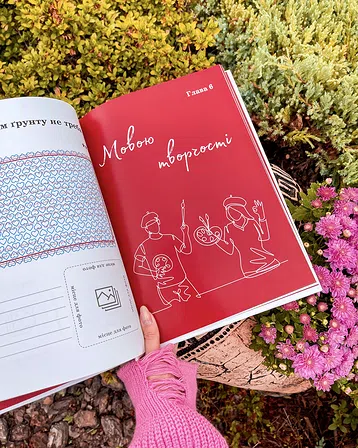 м ґрунту не треб
місце для фото
місце для фото
місце для фото
Глава 6
Мовою
творчості